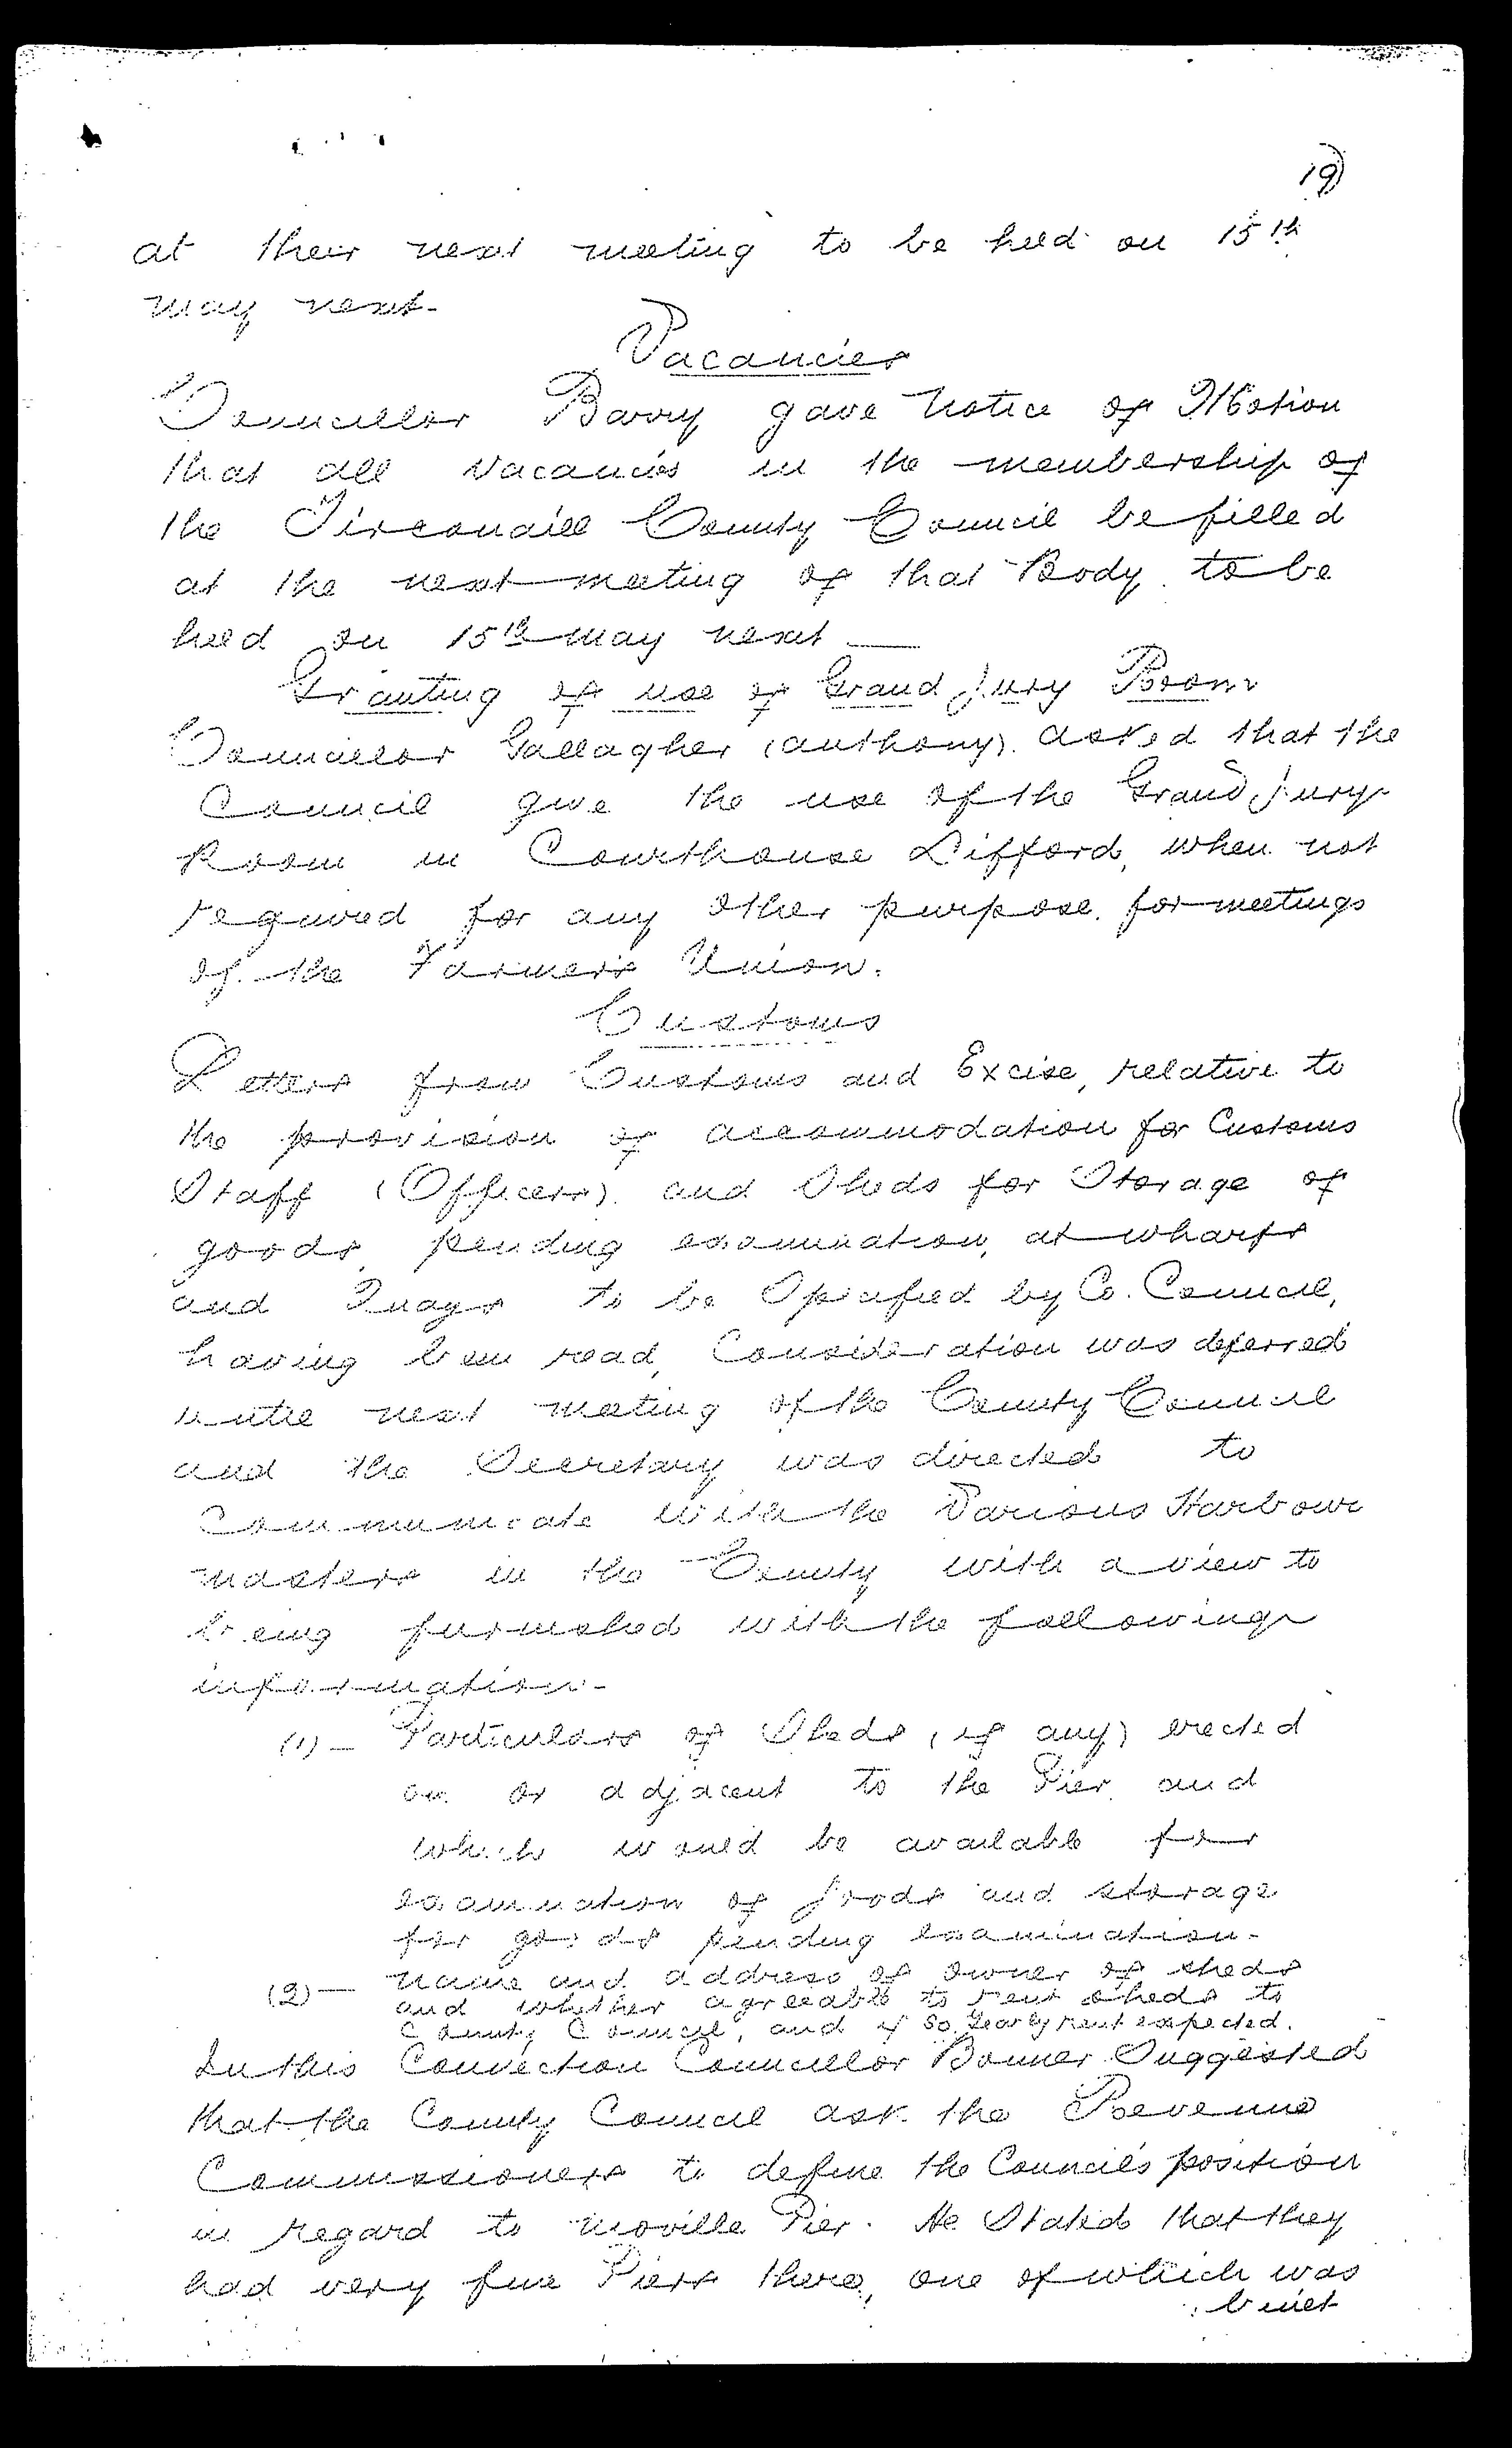 19)
at their next meeting to be held on 15th
may next-
Vacancies
Councillor Barry gave notice of Motion
that all vacancies in the membership of
the Tirconaill County Council be filled
at the next meeting of that Body to be
held on 15th may next —
Granting of use of Grand Jury Room
Councillor Gallagher (Anthony). asked that the
Council give the use of the Grand Jury
Room in Courthouse Lifford, when not
required for any other purpose, for meetings
of the Farmers Union.
Customs
Letters from Customs and Excise, relative to
the provision of accommodation for Customs
Staff (Officers) and Sheds for Storage of
goods, pending examination, at wharfs
and Quays to be Specified by Co. Council,
having been read, Consideration was deferred
until next meeting of the County Council
and the Secretary was directed to
Communicate with the Various Harbour
masters in the County with a view to
being furnished with the following
information-
(1) — Particulars of Sheds (if any) erected
on or adjacent to the Pier and
which would be available for
examination of goods and storage
for goods pending examination-
(2) — name and address of owner of sheds
and whether agreeable to rent sheds to
County Council, and if so, yearly rent expected.
In this Connection Councillor Bonner Suggested
that the County Council ask the Revenue
Commissioners to define the Council's position
in regard to Moville Pier. He Stated that they
had very fine Piers there, one of which was
built